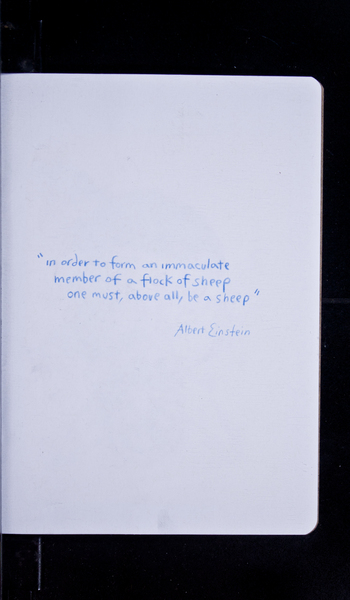 "in order to form an immaculate
member of a flock of sheep
one must, above all, be a sheep"
Albert Einstein